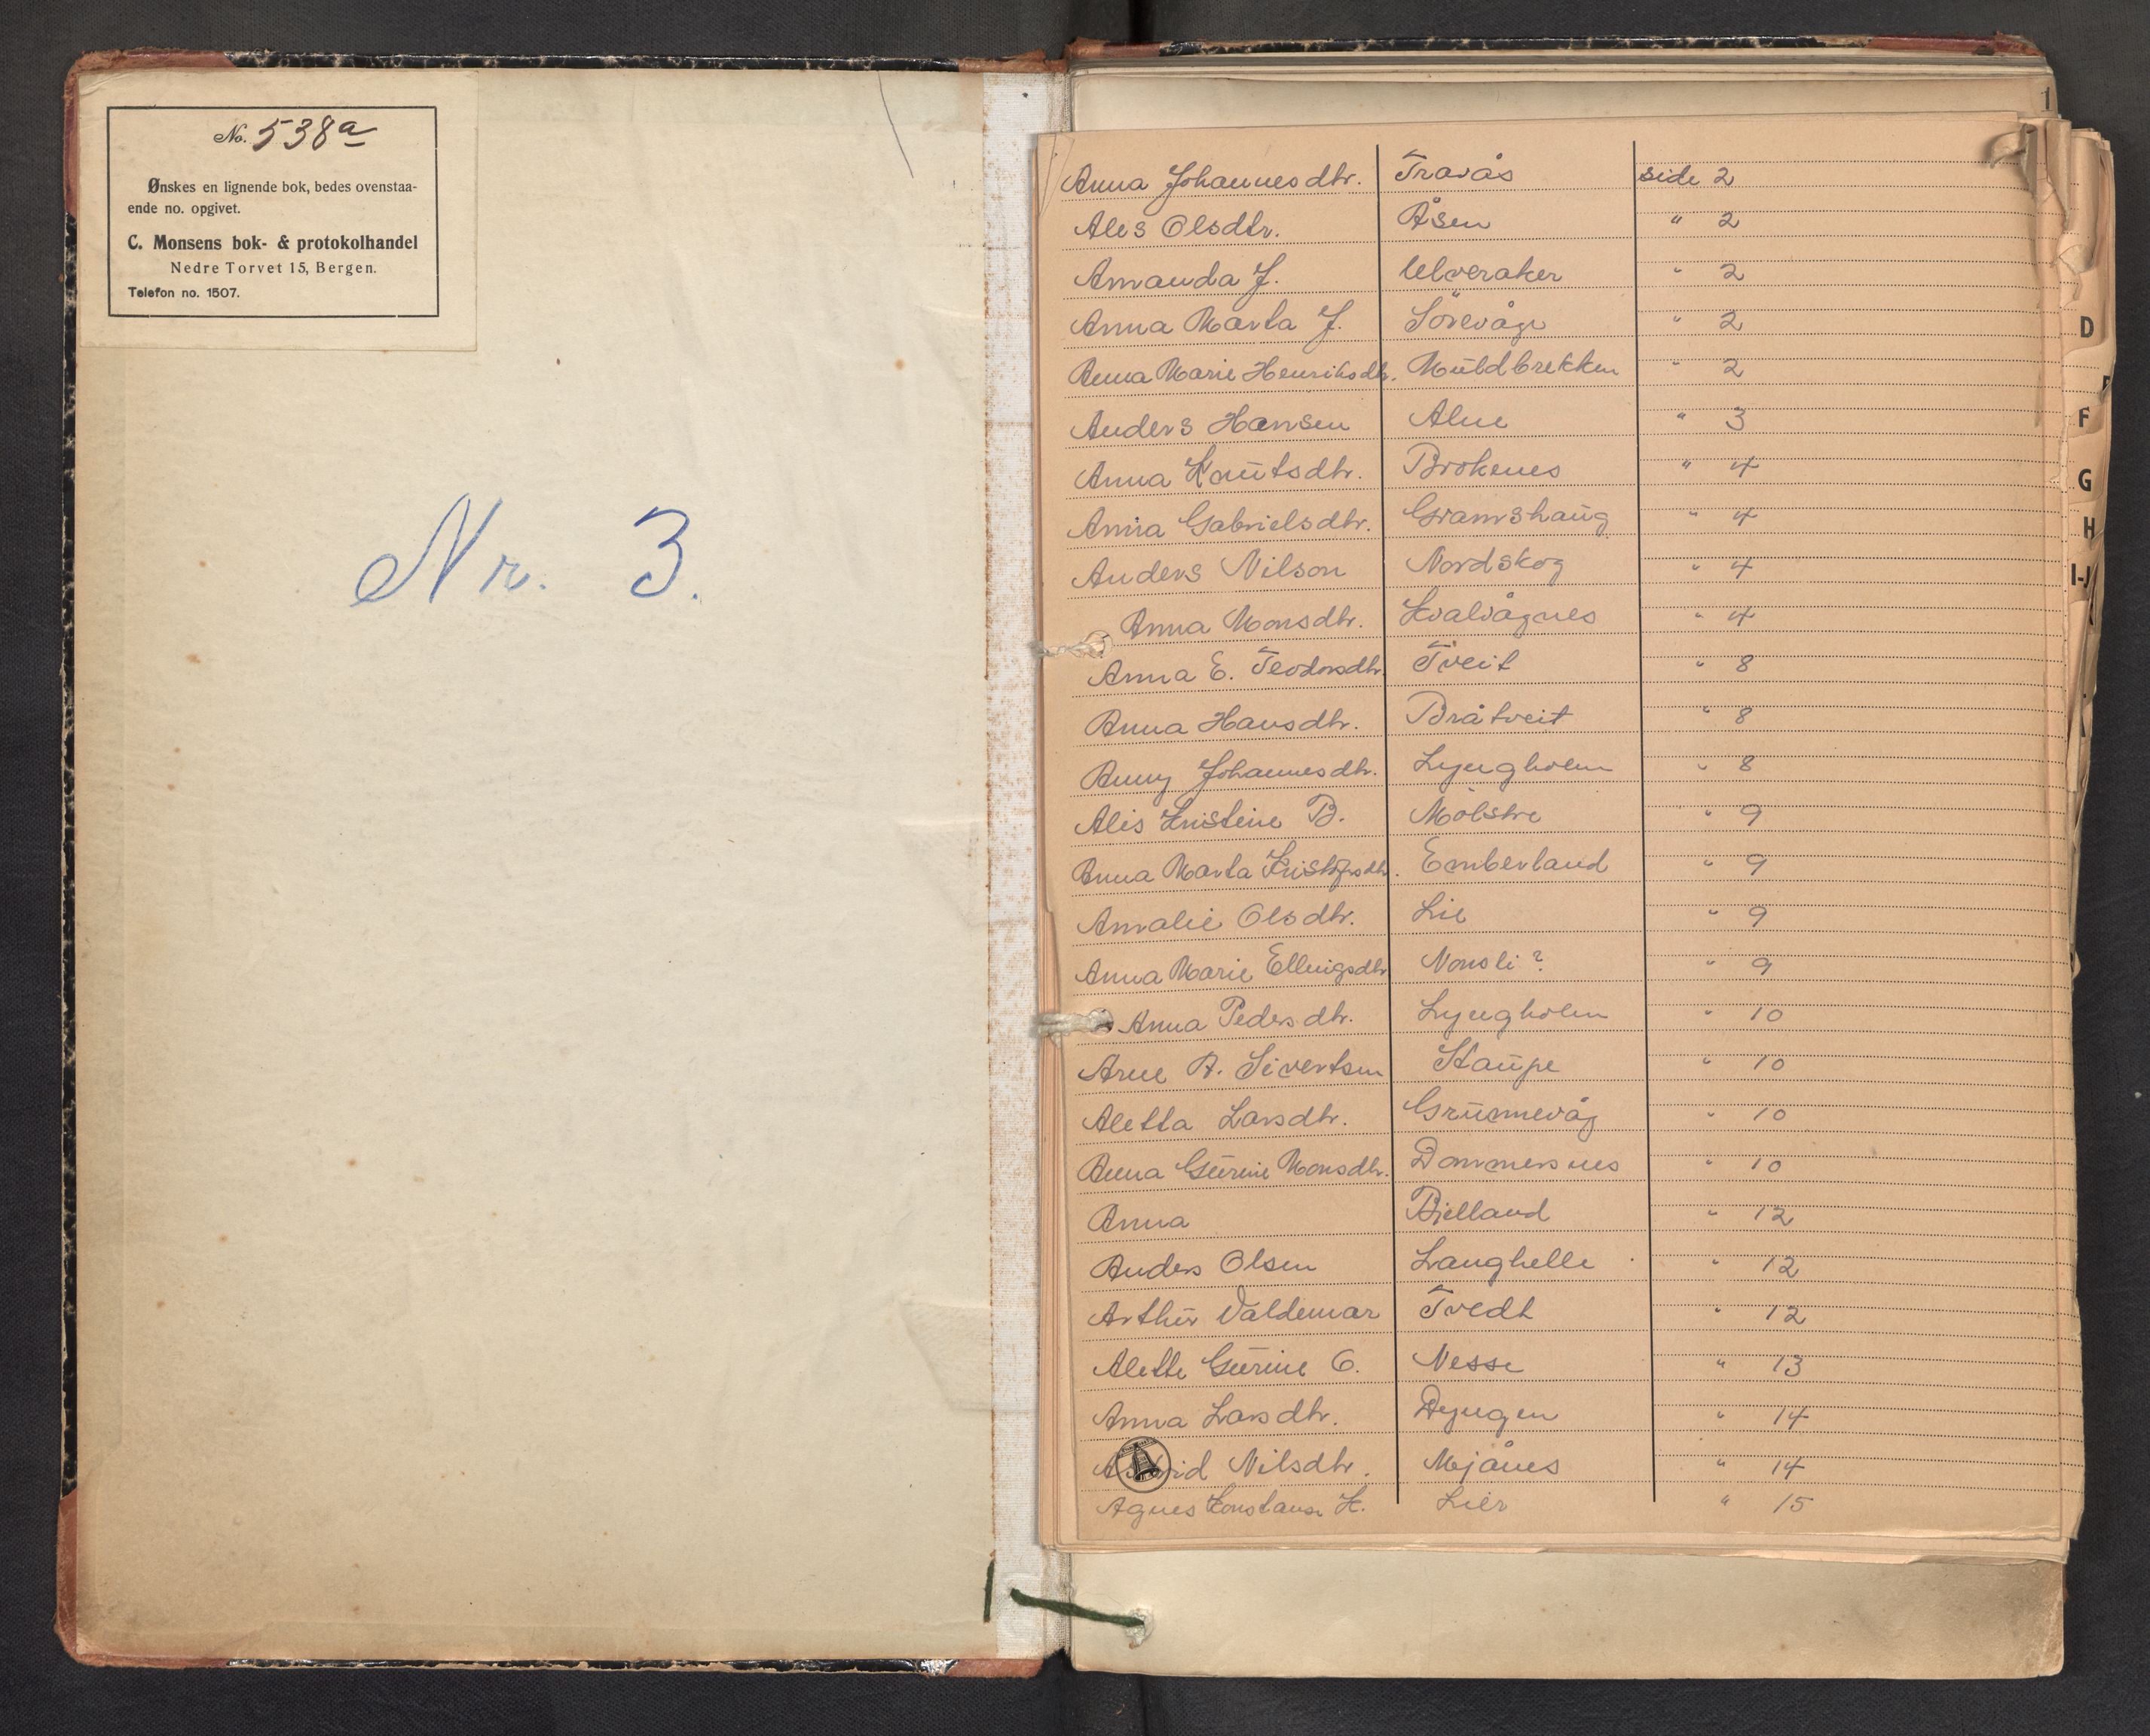 No. 538a
Ønskes en lignende bok, bedes ovenstaa-
ende no. opgivet.
C. Monsens bok- & protokolhandel
Nedre Torvet 15, Bergen.
Telefon no. 1507.
Nr. 3.
1
Anna Johannesdtr. Travås side 2
Alis Olsdtr. Åsen " 2
Amanda J. Ulveraker " 2
Anna Marta J. Sörevåge " 2
Anna Marie Henriksdtr. Muldbrekken " 2
Anders Hansen Alne " 3
Anna Knutsdtr. Brokenes " 4
Anna Gabrielsdtr. Gramshaug " 4
Anders Nilson Nordskog " 4
Anna Monsdtr. Kvalvågnes " 4
Anna E. Teodorsdtr. Tveit " 8
Anna Hansdtr. Bråtveit " 8
Anny Johannesdtr. Lyngholm " 8
Alis Kristine B. Mölstre " 9
Anna Marta Kristofersdtr. Emberland " 9
Amalie Olsdtr. Lie " 9
Anna Marie Ellingsdtr Nonsli? " 9
Anna Pedersdtr. Lyngholm " 10
Arne A. Sivertsen Staupe " 10
Aletta Larsdtr. Grunnevåg " 10
Anna Gurine Monsdtr. Dommersnes " 10
Anna Bjelland " 12
Anders Olsen Langhelle " 12
Arthur Valdemar Tvedt " 12
Alette Gurine O. Nesse " 13
Anna Larsdtr. Dyngen " 14
Astrid Nilsdtr. Mjånes " 14
Agnes Konstanse K. Lier " 15
D
F
G
H
I-J